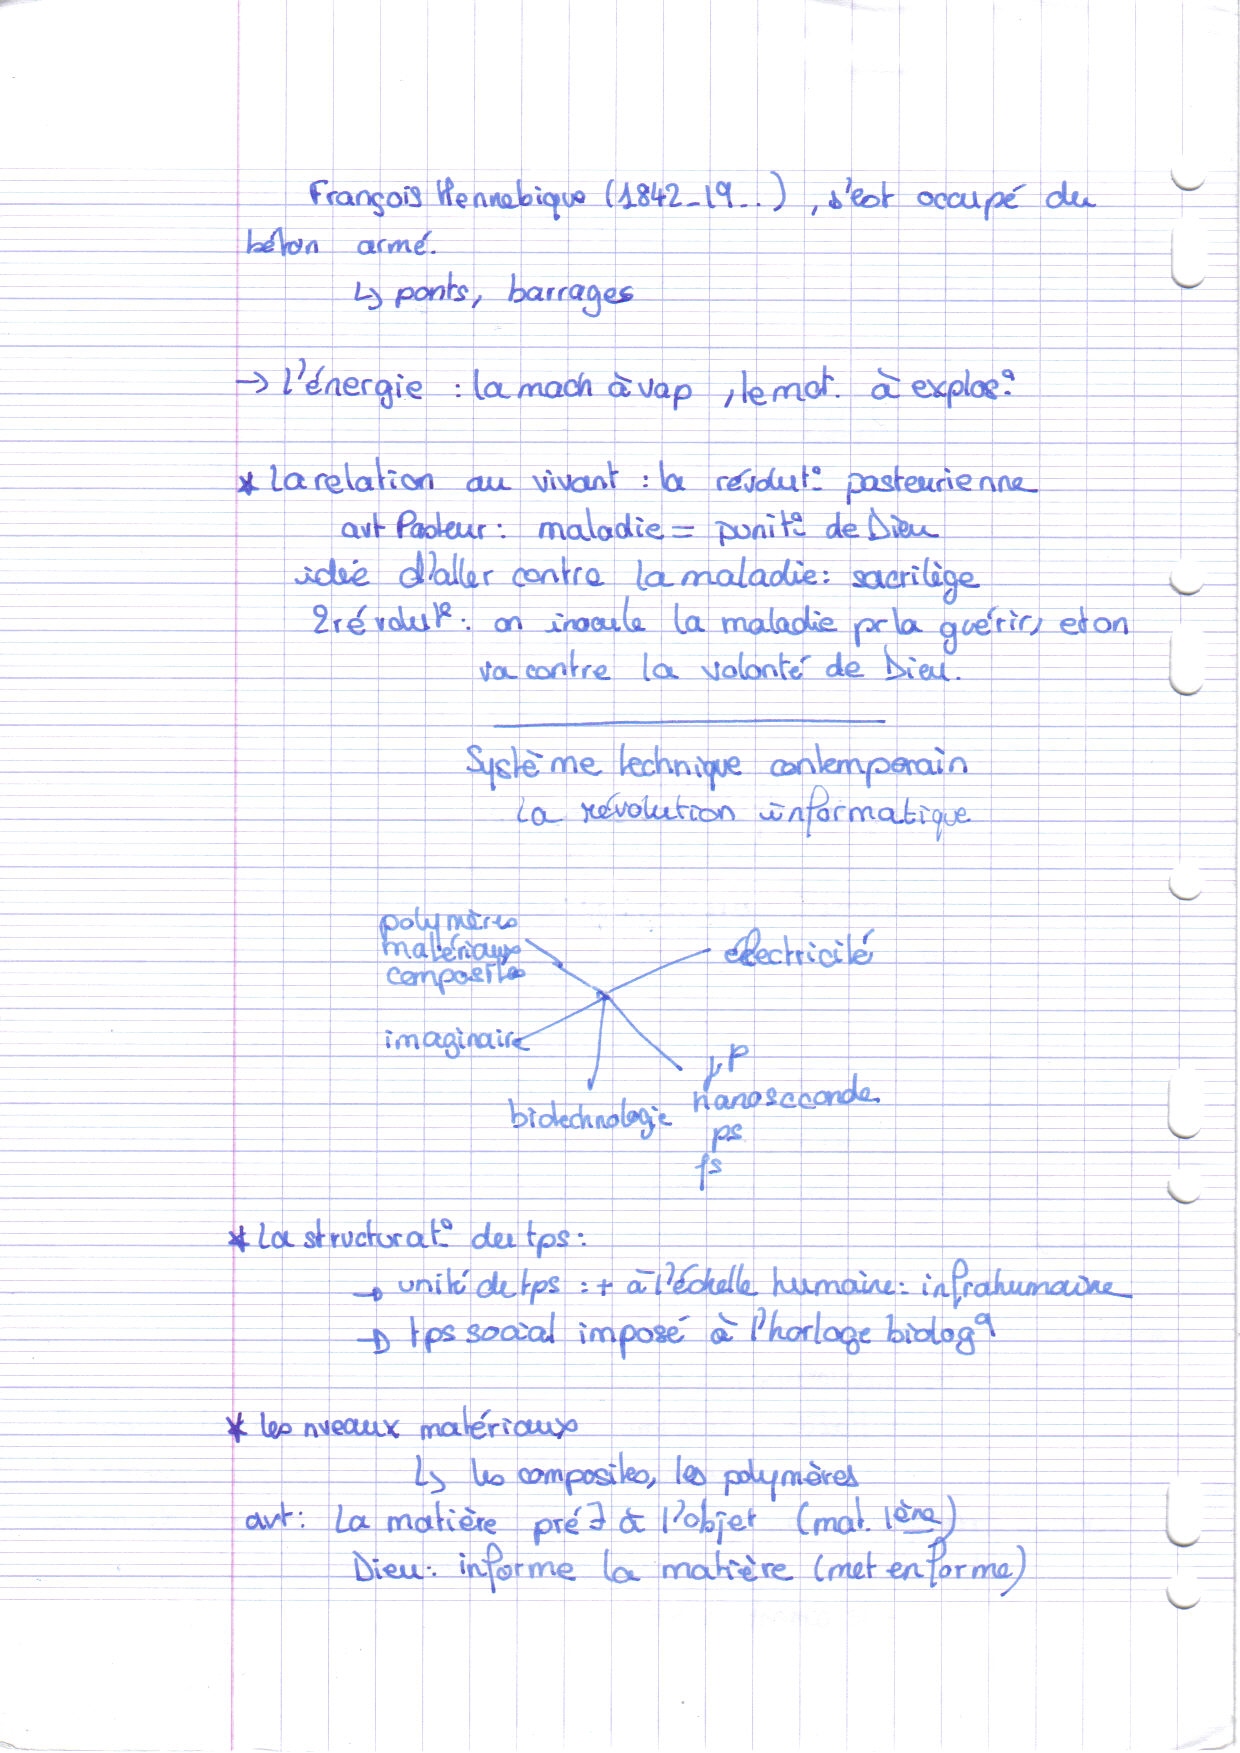 François Hennebique (1842-19..), s'est occupé du
béton armé.
↳ ponts, barrages
→ l'énergie : la mach à vap, le mot. à explos°
* La relation au vivant : la révolut° pasteurienne
avt Pasteur : maladie = punit° de Dieu
idée d'aller contre la maladie : sacrilège
2 révolut° : on inocule la maladie pr la guérir, et on
va contre la volonté de Dieu.
Système technique contemporain
La révolution informatique
polymères
matériaux
composites
électricité
imaginaire
biotechnologie
μP
nanoseconde
ps
fs
* La structurat° du tps :
→ unité de tps : + à l'échelle humaine : infrahumaine
→ tps social imposé à l'horloge biologq
* les nveaux matériaux
↳ les composites, les polymères
avt : La matière pré∃ à l'objet (mat. 1ère)
Dieu : informe la matière (met en forme)